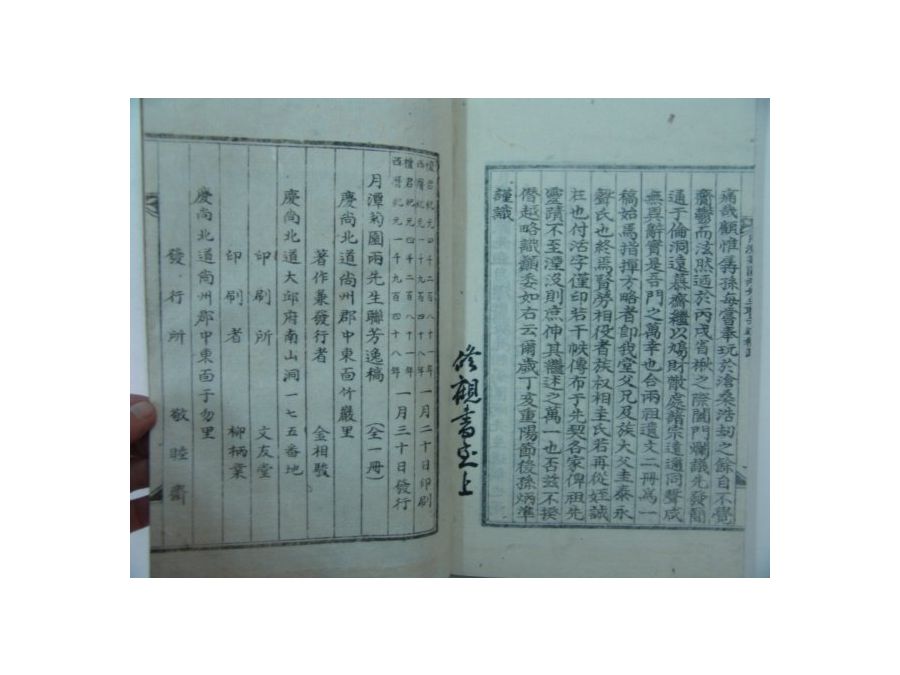 痛哉顧惟孱孫每嘗奉玩於滄桑浩劫之餘自不覺
齎鬱而泫然迺於丙戌省楸之際闔門爛議先發簡
通于倫洞遠慕齋繼以鳩財散處諸宗遠通同聲咸
無異辭實是吾門之萬幸也合兩祖遺文二冊爲一
稿始焉指揮方略者卽我堂父兄及族大父圭泰永
聲氏也終焉賢勞相役者族叔相圭氏若再從姪誠
在也付活字僅印若干帙傳布于先契各家俾祖先
靈蹟不至湮沒則庶伸其繼述之萬一也否玆不揆
僭越略識顚委如右云爾歲丁亥重陽節後孫炳準
謹識
修觀書室上
檀君紀元四千二百八十一年
西曆紀元一千九百四十八年
一月二十日印刷
檀君紀元四千二百八十一年
西曆紀元一千九百四十八年
一月三十日發行
月潭菊園兩先生聯芳逸稿(全一冊)
慶尙北道尙州郡中東面竹巖里
著作兼發行者 金相駿
慶尙北道大邱府南山洞一七五番地
印刷所 文友堂
印刷者 柳柄業
慶尙北道尙州郡中東面于勿里
發行所 敬睦齋